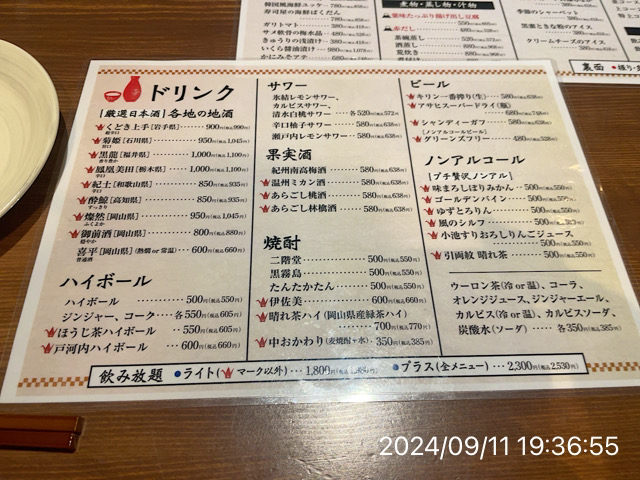 韓国風海鮮ユッケ
ガリトマト
サメ軟骨の梅水晶
きゅうりの浅漬け
いくら醤油漬け
かにみそアテ
煮物・蒸し物・汁物
茶碗蒸し
酒蒸し
荒炊き
季節のシャーベット
黒蜜ときな粉のアイス
クリームチーズのアイス
裏面
ドリンク
[厳選日本酒]各地の地酒
くどき上手[岩手県] 900円(税込990円)
菊姫[石川県] 950円(税込1,045円)
黒龍[福井県] 1,000円(税込1,100円)
鳳凰美田[栃木県] 1,000円(税込1,100円)
紀土[和歌山県] 850円(税込935円)
酔鯨[高知県] 850円(税込935円)
燦然[岡山県] 950円(税込1,045円)
御前酒[岡山県] 800円(税込880円)
喜平[岡山県](熱燗 or 常温) 600円(税込660円)
ハイボール
ハイボール 500円(税込550円)
ジンジャー、コーク 各550円(税込605円)
ほうじ茶ハイボール 550円(税込605円)
戸河内ハイボール 600円(税込660円)
サワー
氷結レモンサワー、
カルピスサワー、
清水白桃サワー 各520円(税込572円)
辛口柚子サワー 580円(税込638円)
瀬戸内レモンサワー 580円(税込638円)
果実酒
紀州南高梅酒 580円(税込638円)
温州ミカン酒 580円(税込638円)
あらごし桃酒 580円(税込638円)
あらごし林檎酒 580円(税込638円)
焼酎
二階堂 500円(税込550円)
黒霧島 500円(税込550円)
たんたかたん 500円(税込550円)
伊佐美 600円(税込660円)
晴れ茶ハイ(岡山県産緑茶ハイ)
700円(税込770円)
中おかわり(麦焼酎+水) 350円(税込385円)
ビール
キリン一番搾り(生) 580円(税込638円)
アサヒスーパードライ(瓶)
680円(税込748円)
シャンディーガフ 580円(税込638円)
[ノンアルコールビール]
グリーンズフリー 480円(税込528円)
ノンアルコール
[プチ贅沢ノンアル]
味まろしぼりみかん 500円(税込550円)
ゴールデンパイン 500円
ゆずとろりん 500円(税込550円)
風のシルフ 500円
小池すりおろしりんごジュース
500円(税込550円)
引両紋 晴れ茶 500円(税込550円)
ウーロン茶(冷 or 温)、コーラ、
オレンジジュース、ジンジャーエール、
カルピス(冷 or 温)、カルピスソーダ、
炭酸水(ソーダ) 各350円(税込385円)
飲み放題 ●ライト(マーク以外)…1,800円 ●プラス(全メニュー)…2,300円(税込2,530円)
2024/09/11 19:36:55